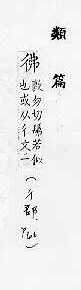 類篇
彿 敷勿切彷彿若似
也或从彳文一
(彳部・